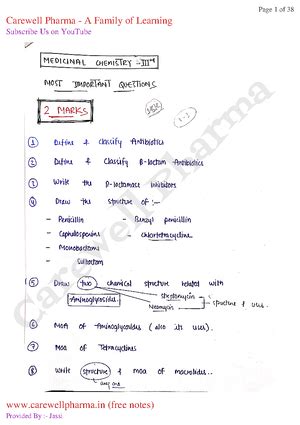 Page 1 of 38
Carewell Pharma - A Family of Learning
Subscribe Us on YouTube
MEDICINAL CHEMISTRY - III
MOST IMPORTANT QUESTIONS
2 MARKS
1 Define & Classify Antibiotics
2 Define & Classify β-lactam Antibiotics
3 Write the β-lactamase inhibitors
4 Draw the structure of :-
- Penicillin - Benzyl penicillin
- Cephalosporins - chlortetracycline
- Monobactams
- Sulbactam
5 Draw two chemical structure related with
Aminoglycosides Streptomycin
Neomycin structure & uses
6 MOA of Aminoglycosides (also its uses)
7 MOA of Tetracyclines
8 Write structure & moa of macrolides..
any one
Carewell Pharma
www.carewellpharma.in (free notes)
Provided By :- Jassi